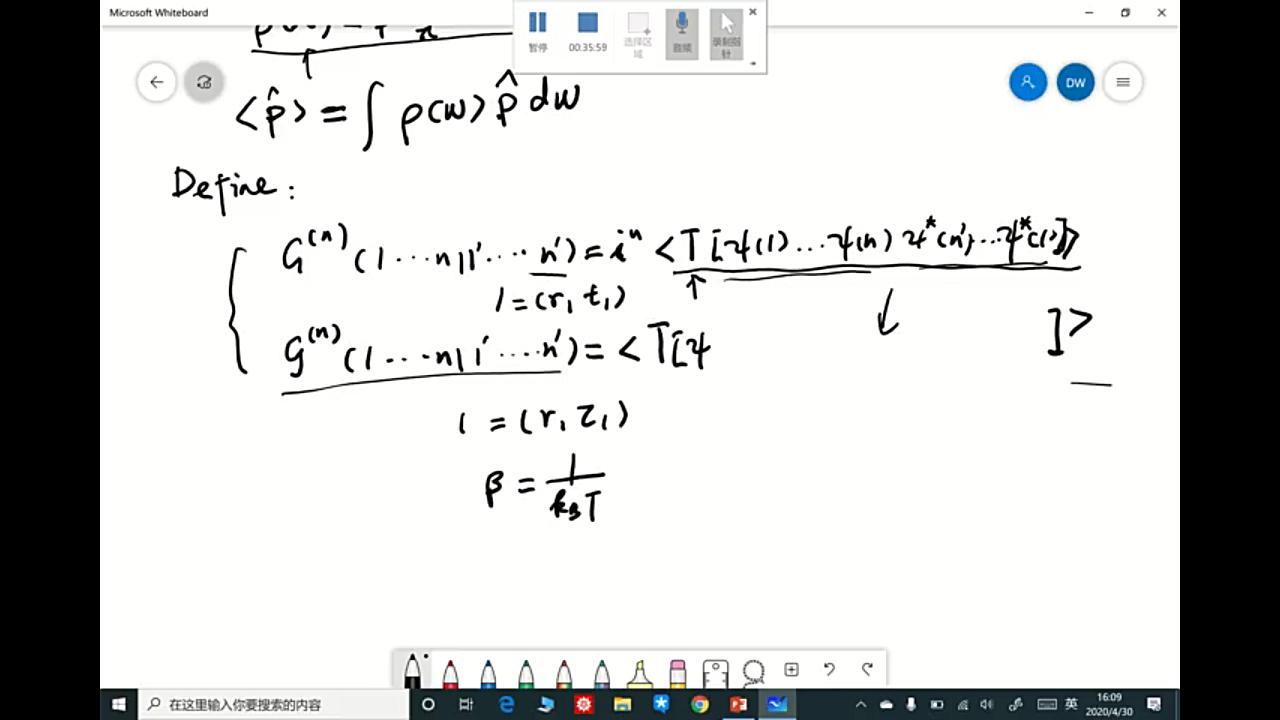 Microsoft Whiteboard
暂停
00:35:59
选择区域
音频
录制指针
DW
<p̂> = ∫ ρ(w) p̂ dw
Define:
G⁽ⁿ⁾(1···n|1'···n') = iⁿ <T[ψ(1)...ψ(n) ψ*(n')...ψ*(1')]>
1 = (r₁ t₁)
]>
G⁽ⁿ⁾(1···n|1'····n') = < T[ψ
1 = (r₁ τ₁)
β = 1/k_BT
在这里输入你要搜索的内容
英
16:09
2020/4/30